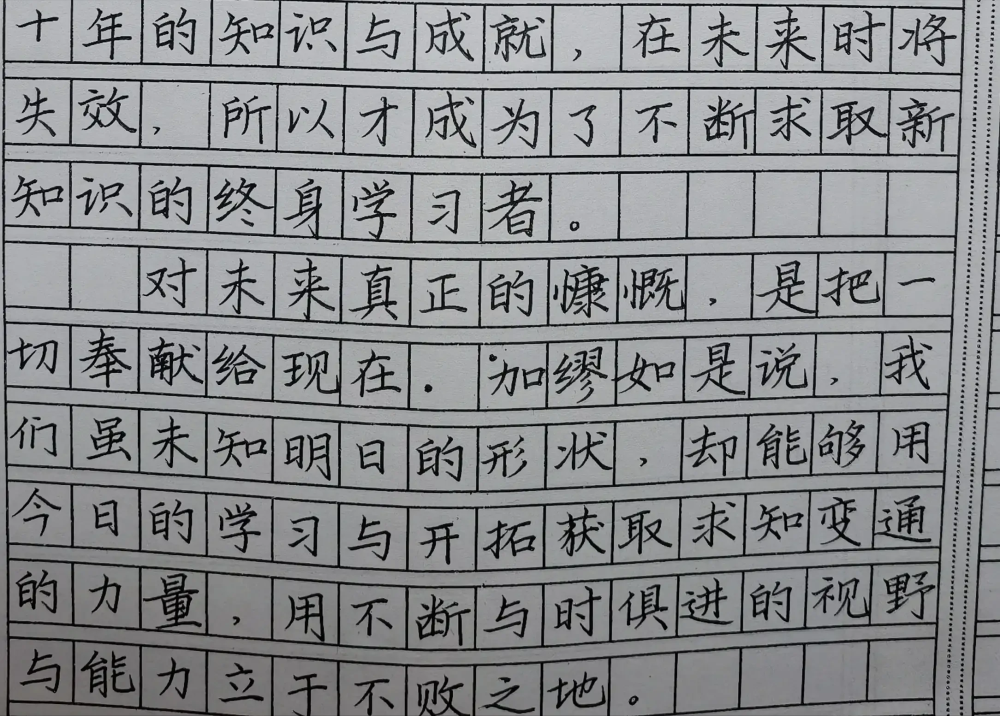 十年的知识与成就，在未来时将
失效，所以才成为了不断求取新
知识的终身学习者。
对未来真正的慷慨，是把一
切奉献给现在．加缪如是说，我
们虽未知明日的形状，却能够用
今日的学习与开拓获取求知变通
的力量，用不断与时俱进的视野
与能力立于不败之地。